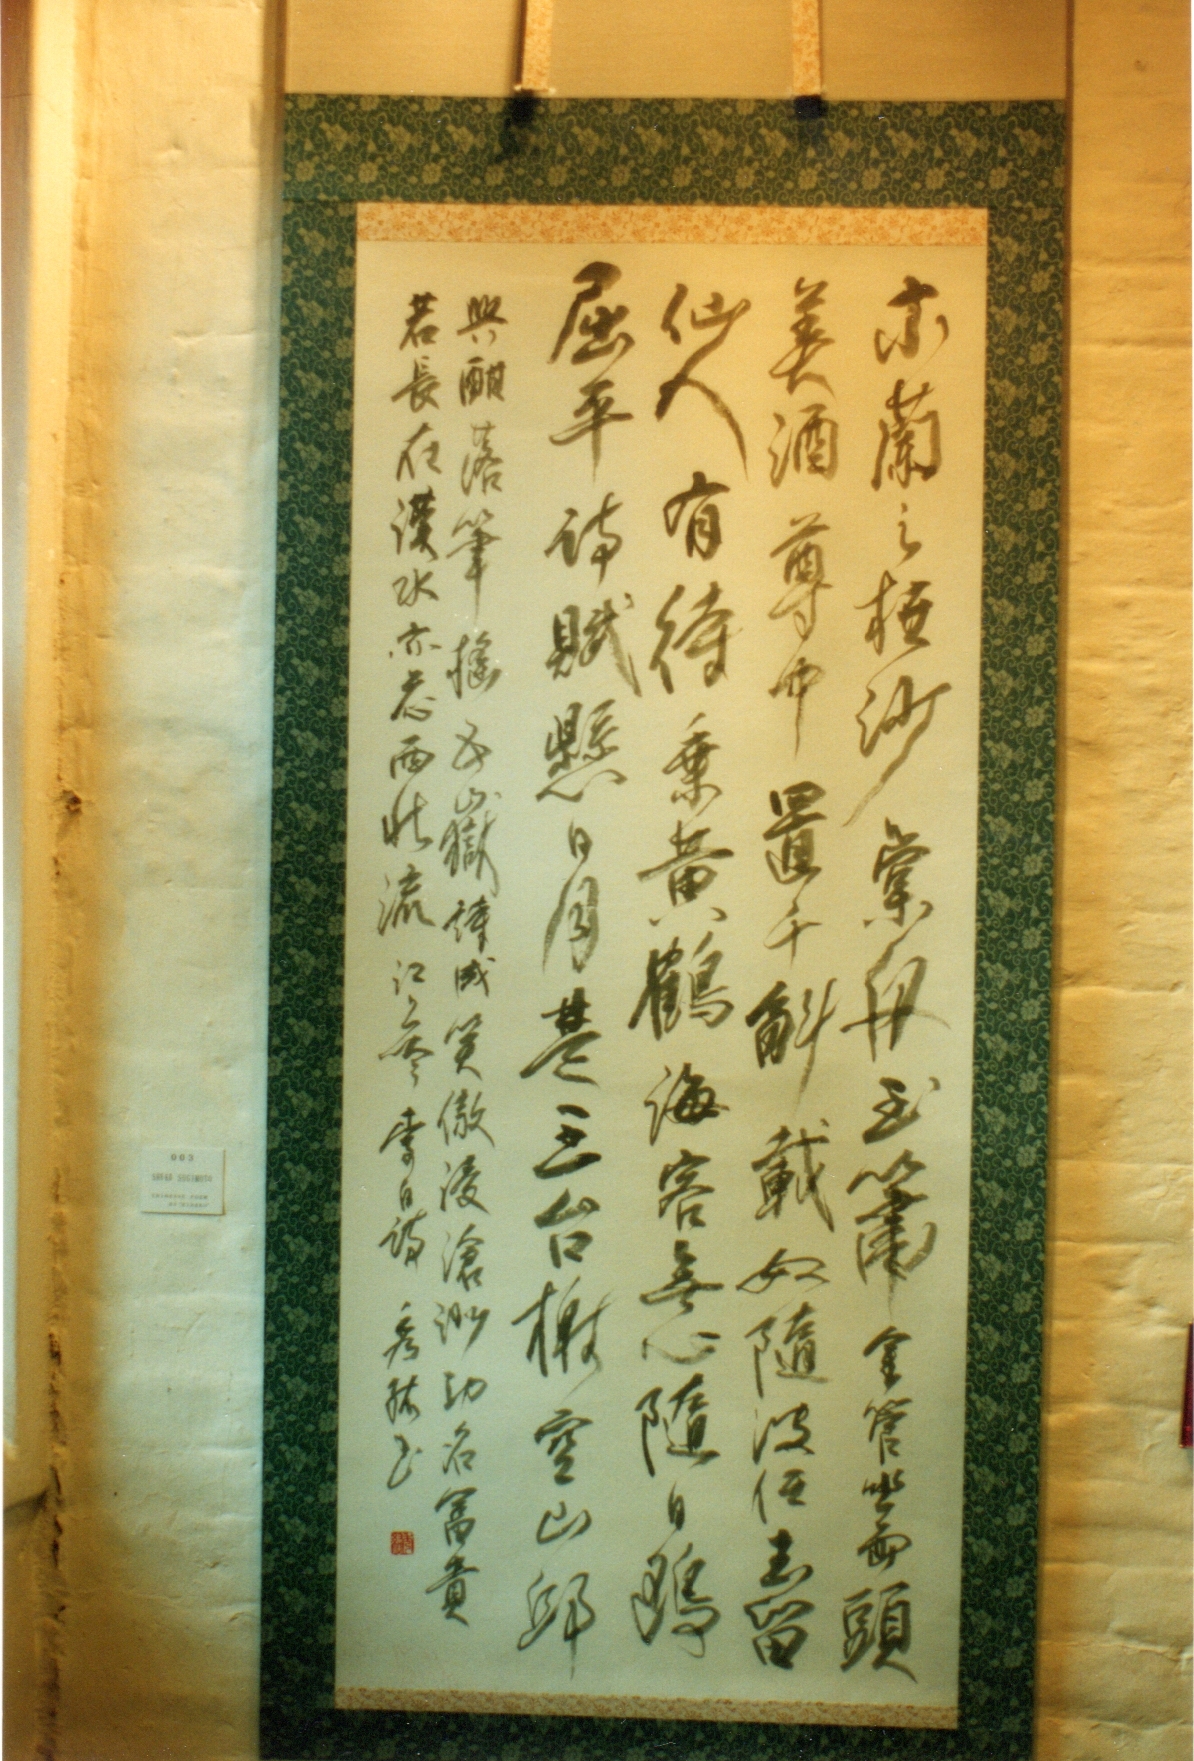 木蘭之枻沙棠舟玉簫金管坐兩頭
美酒尊中置千斛載妓隨波任去留
仙人有待乘黃鶴海客無心隨白鷗
屈平詩賦懸日月楚王台榭空山邱
興酣落筆搖五嶽詩成笑傲凌滄洲功名富貴
若長在漢水亦應西北流 江上吟 李白詩
003
SUGIMOTO